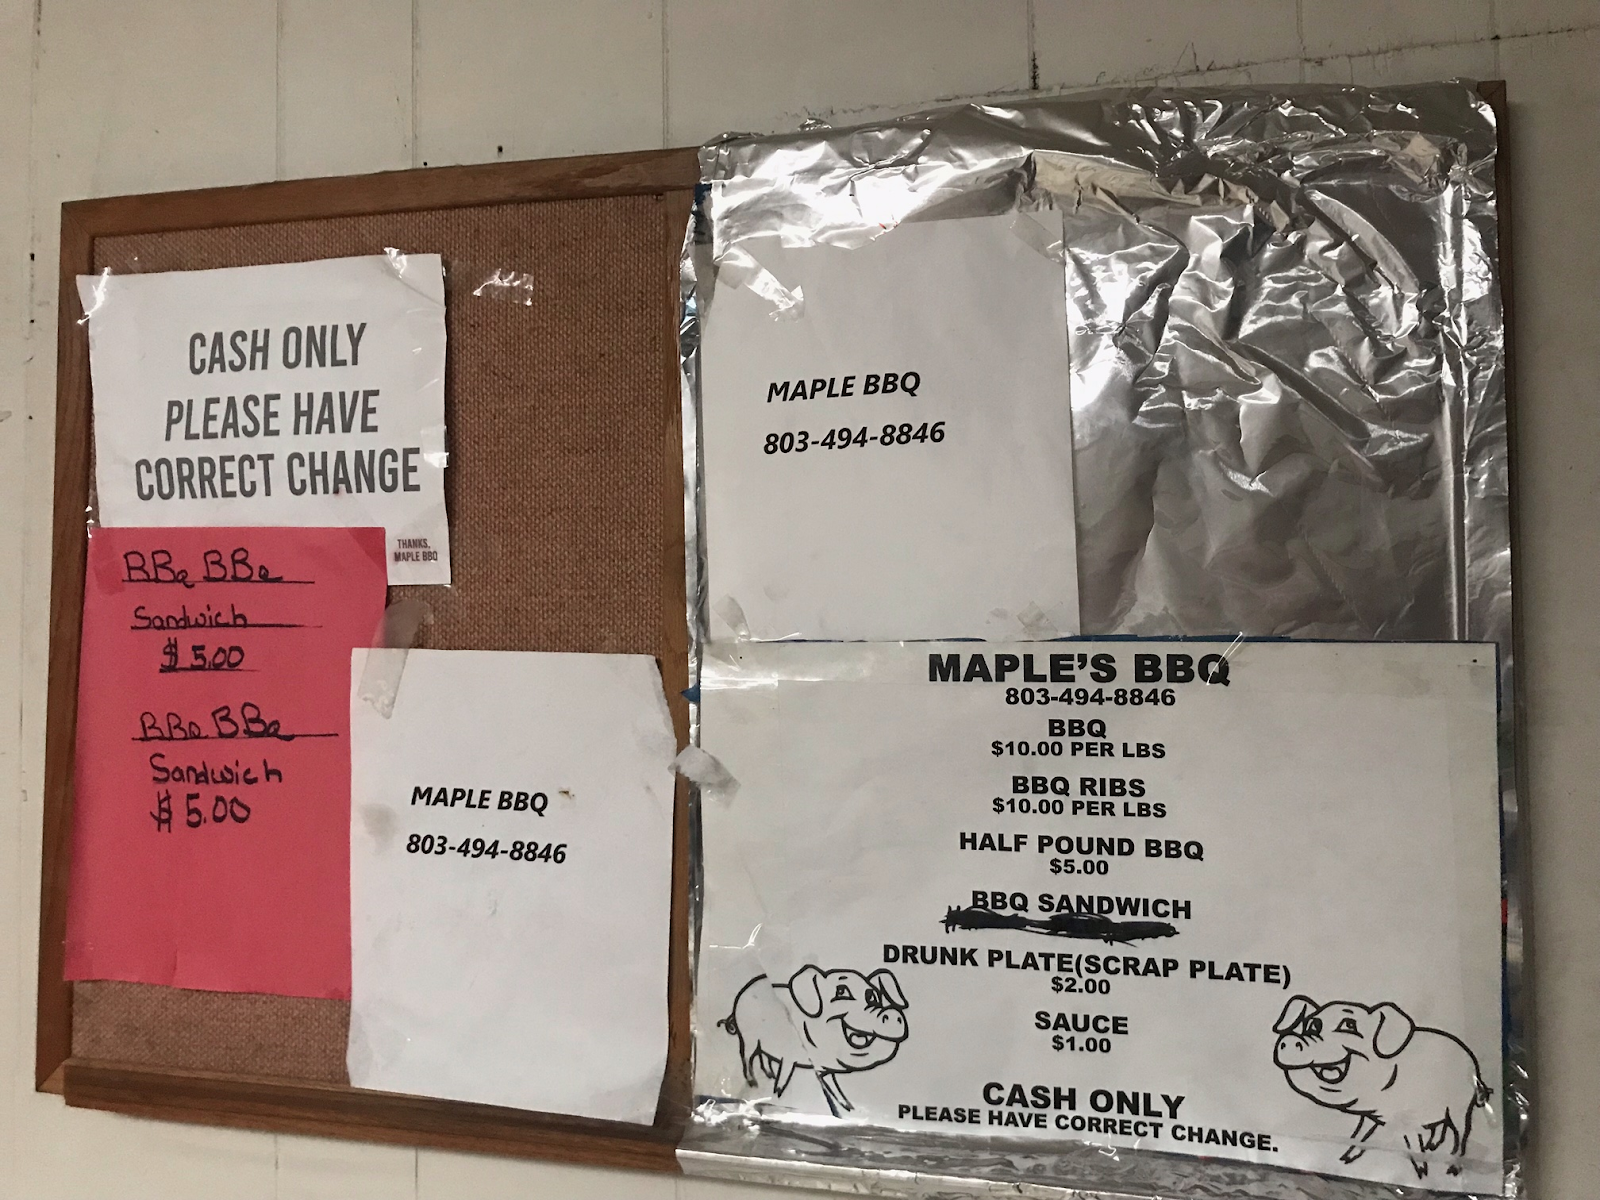 CASH ONLY
PLEASE HAVE
CORRECT CHANGE
THANKS,
MAPLE BBQ
BBQ BBQ
Sandwich
$ 5.00
BBQ BBQ
Sandwich
$ 5.00
MAPLE BBQ
803-494-8846
MAPLE BBQ
803-494-8846
MAPLE'S BBQ
803-494-8846
BBQ
$10.00 PER LBS
BBQ RIBS
$10.00 PER LBS
HALF POUND BBQ
$5.00
BBQ SANDWICH
DRUNK PLATE(SCRAP PLATE)
$2.00
SAUCE
$1.00
CASH ONLY
PLEASE HAVE CORRECT CHANGE.